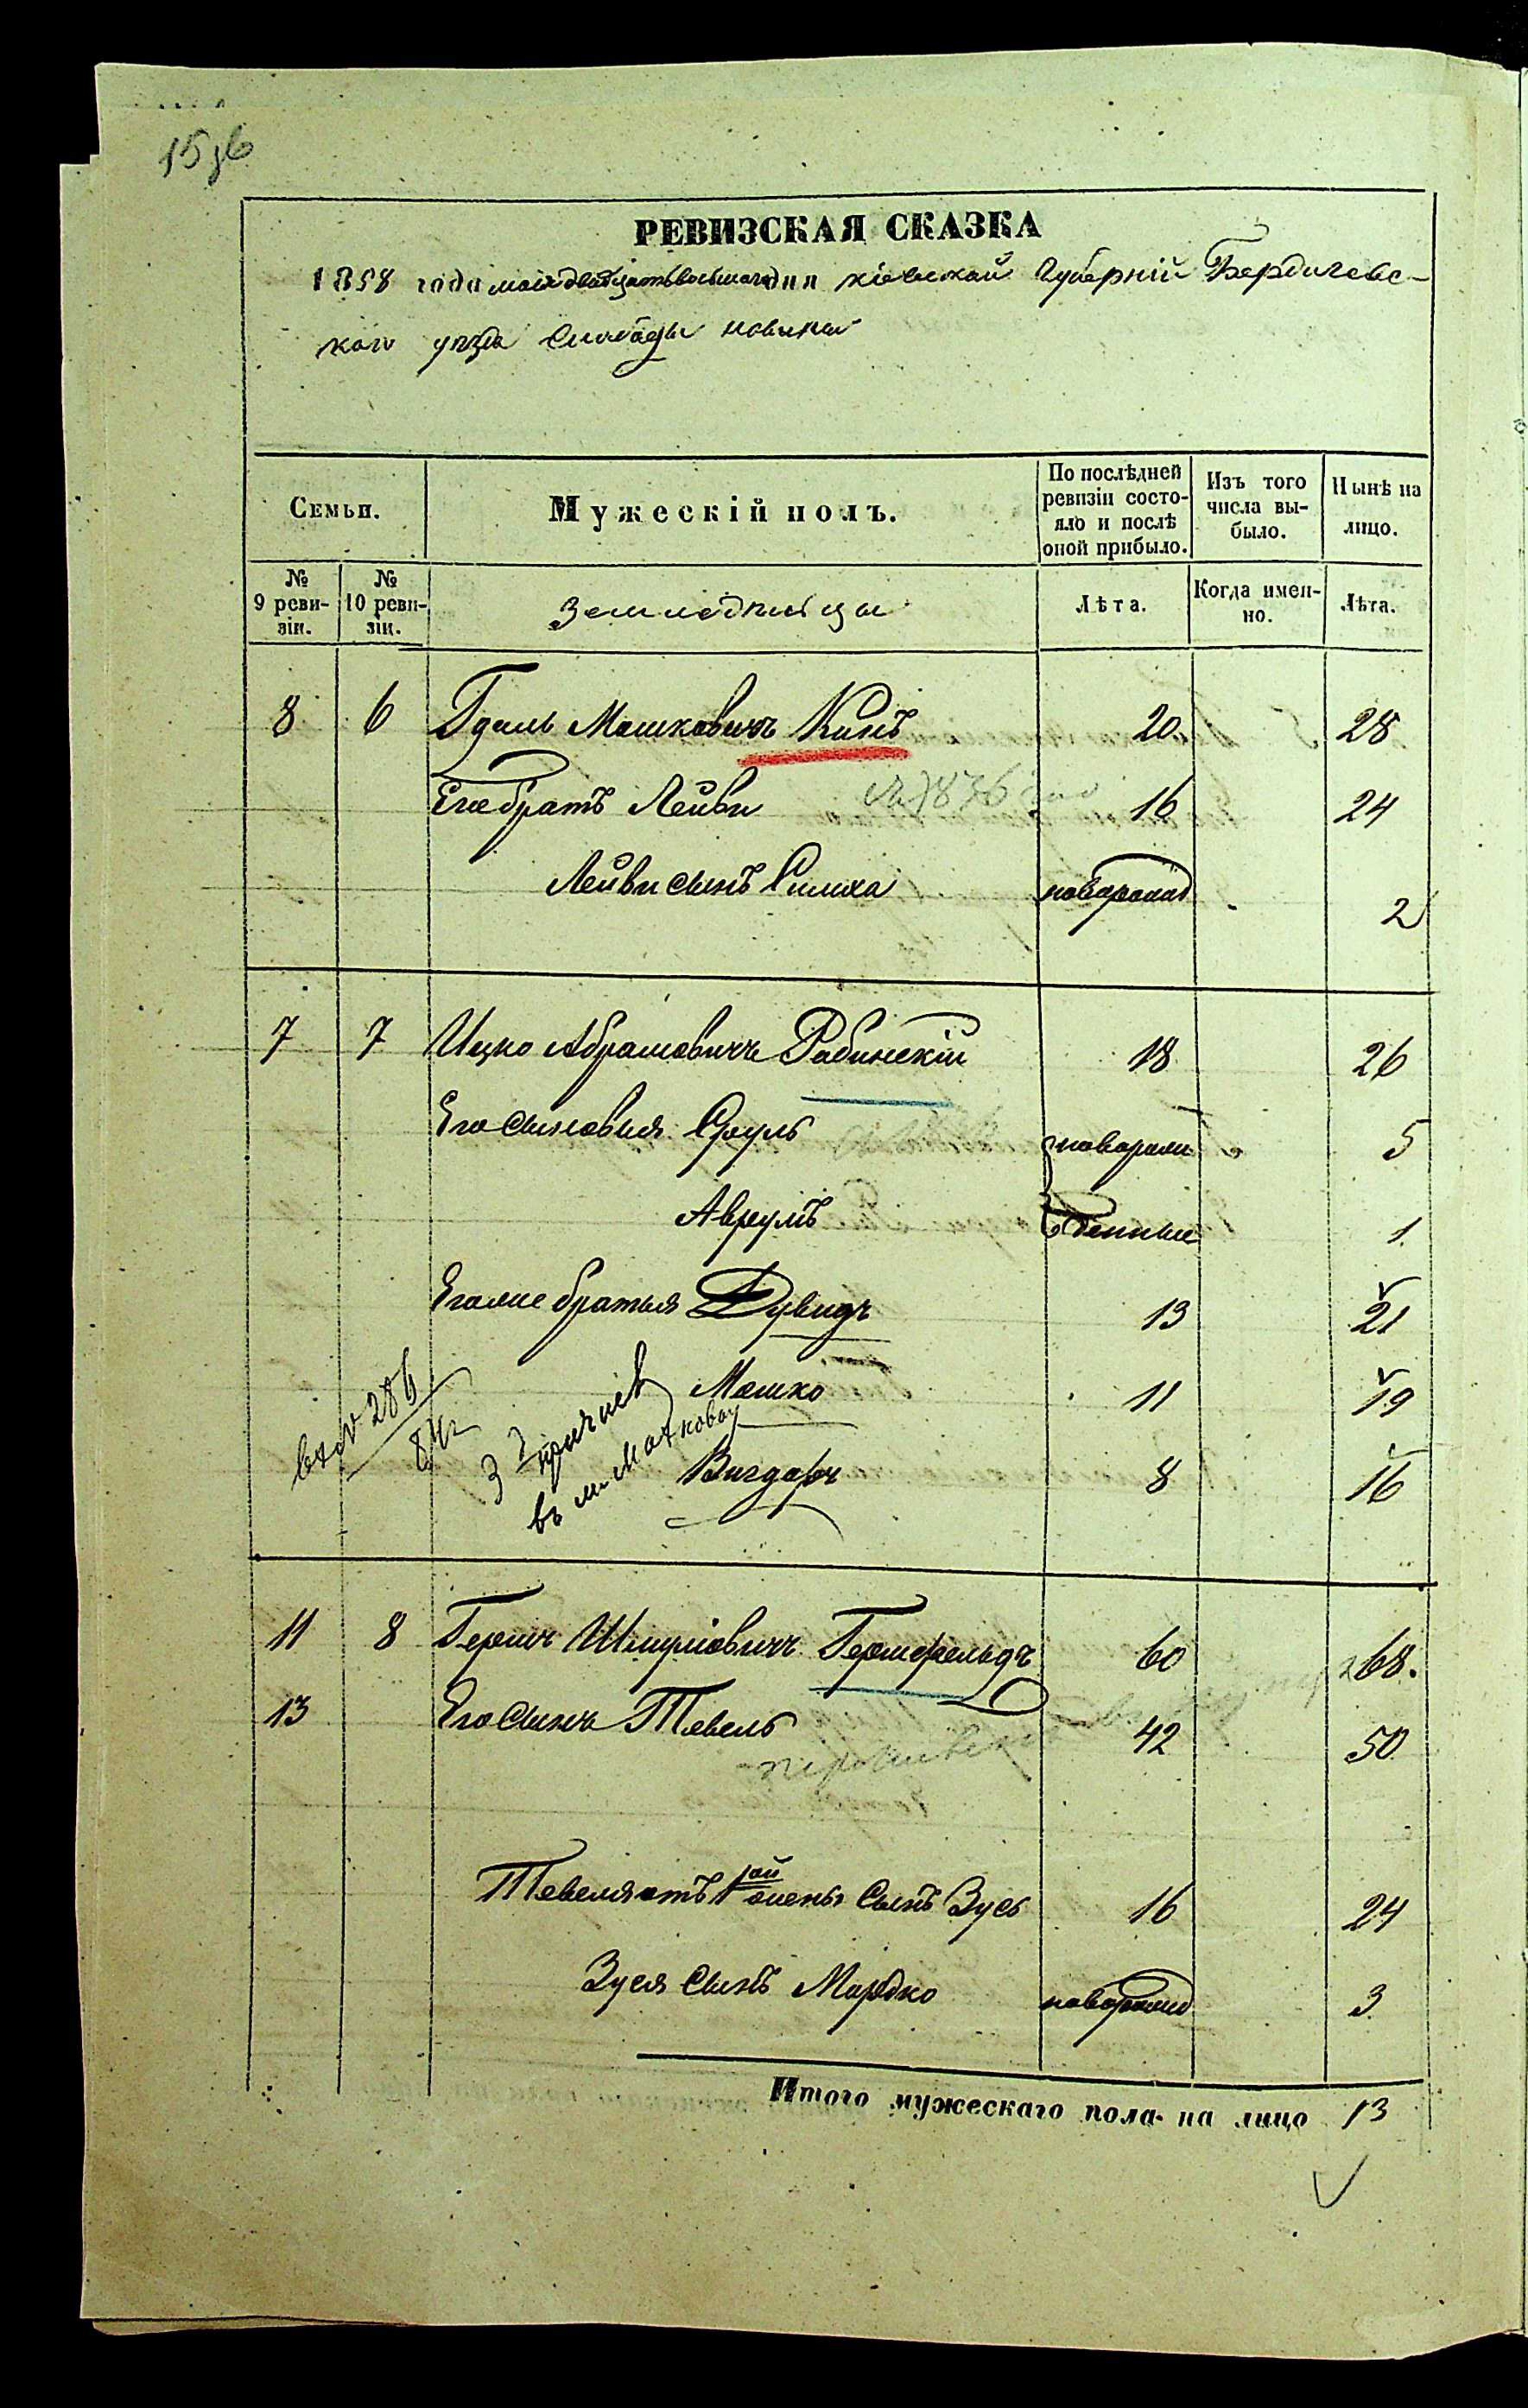 РЕВИЗСКАЯ СКАЗКА
1858 года мая двадцать восьмаго дня Кіевской Губерніи Бердичевс-
каго уезда Слободы Новины
Семьи.
Мужескій полъ.
По послѣдней ревизіи состо-яло и послѣ оной прибыло.
Изъ того числа вы-было.
Нынѣ на лицо.
№ 9 реви-зіи.
№ 10 реви-зіи.
Земледельцы
Лѣта.
Когда имен-но.
Лѣта.
8 6 Гдаль Мошковичъ Кипъ 20. 28
Его братъ Лейви 16 24
Лейви сынъ Симха новорожд 2
7 7 Ицко Абрамовичъ Рабинскій 18 26
Его сыновья Сруль новорож 5
Аврумъ денные 1
Его же братья Дувидъ 13 21
Мошко 11 19
Вигдоръ 8 16
вх № 286
84 г
въ м.
11 8 Гершъ Шмулiовичъ Гершфельдъ 60 68.
13 Его сынъ Тевель 42 50
Тевеля отъ 1ой жены сынъ Зусь 16 24
Зуся сынъ Мордко новорожд 3
Итого мужескаго пола на лицо 13